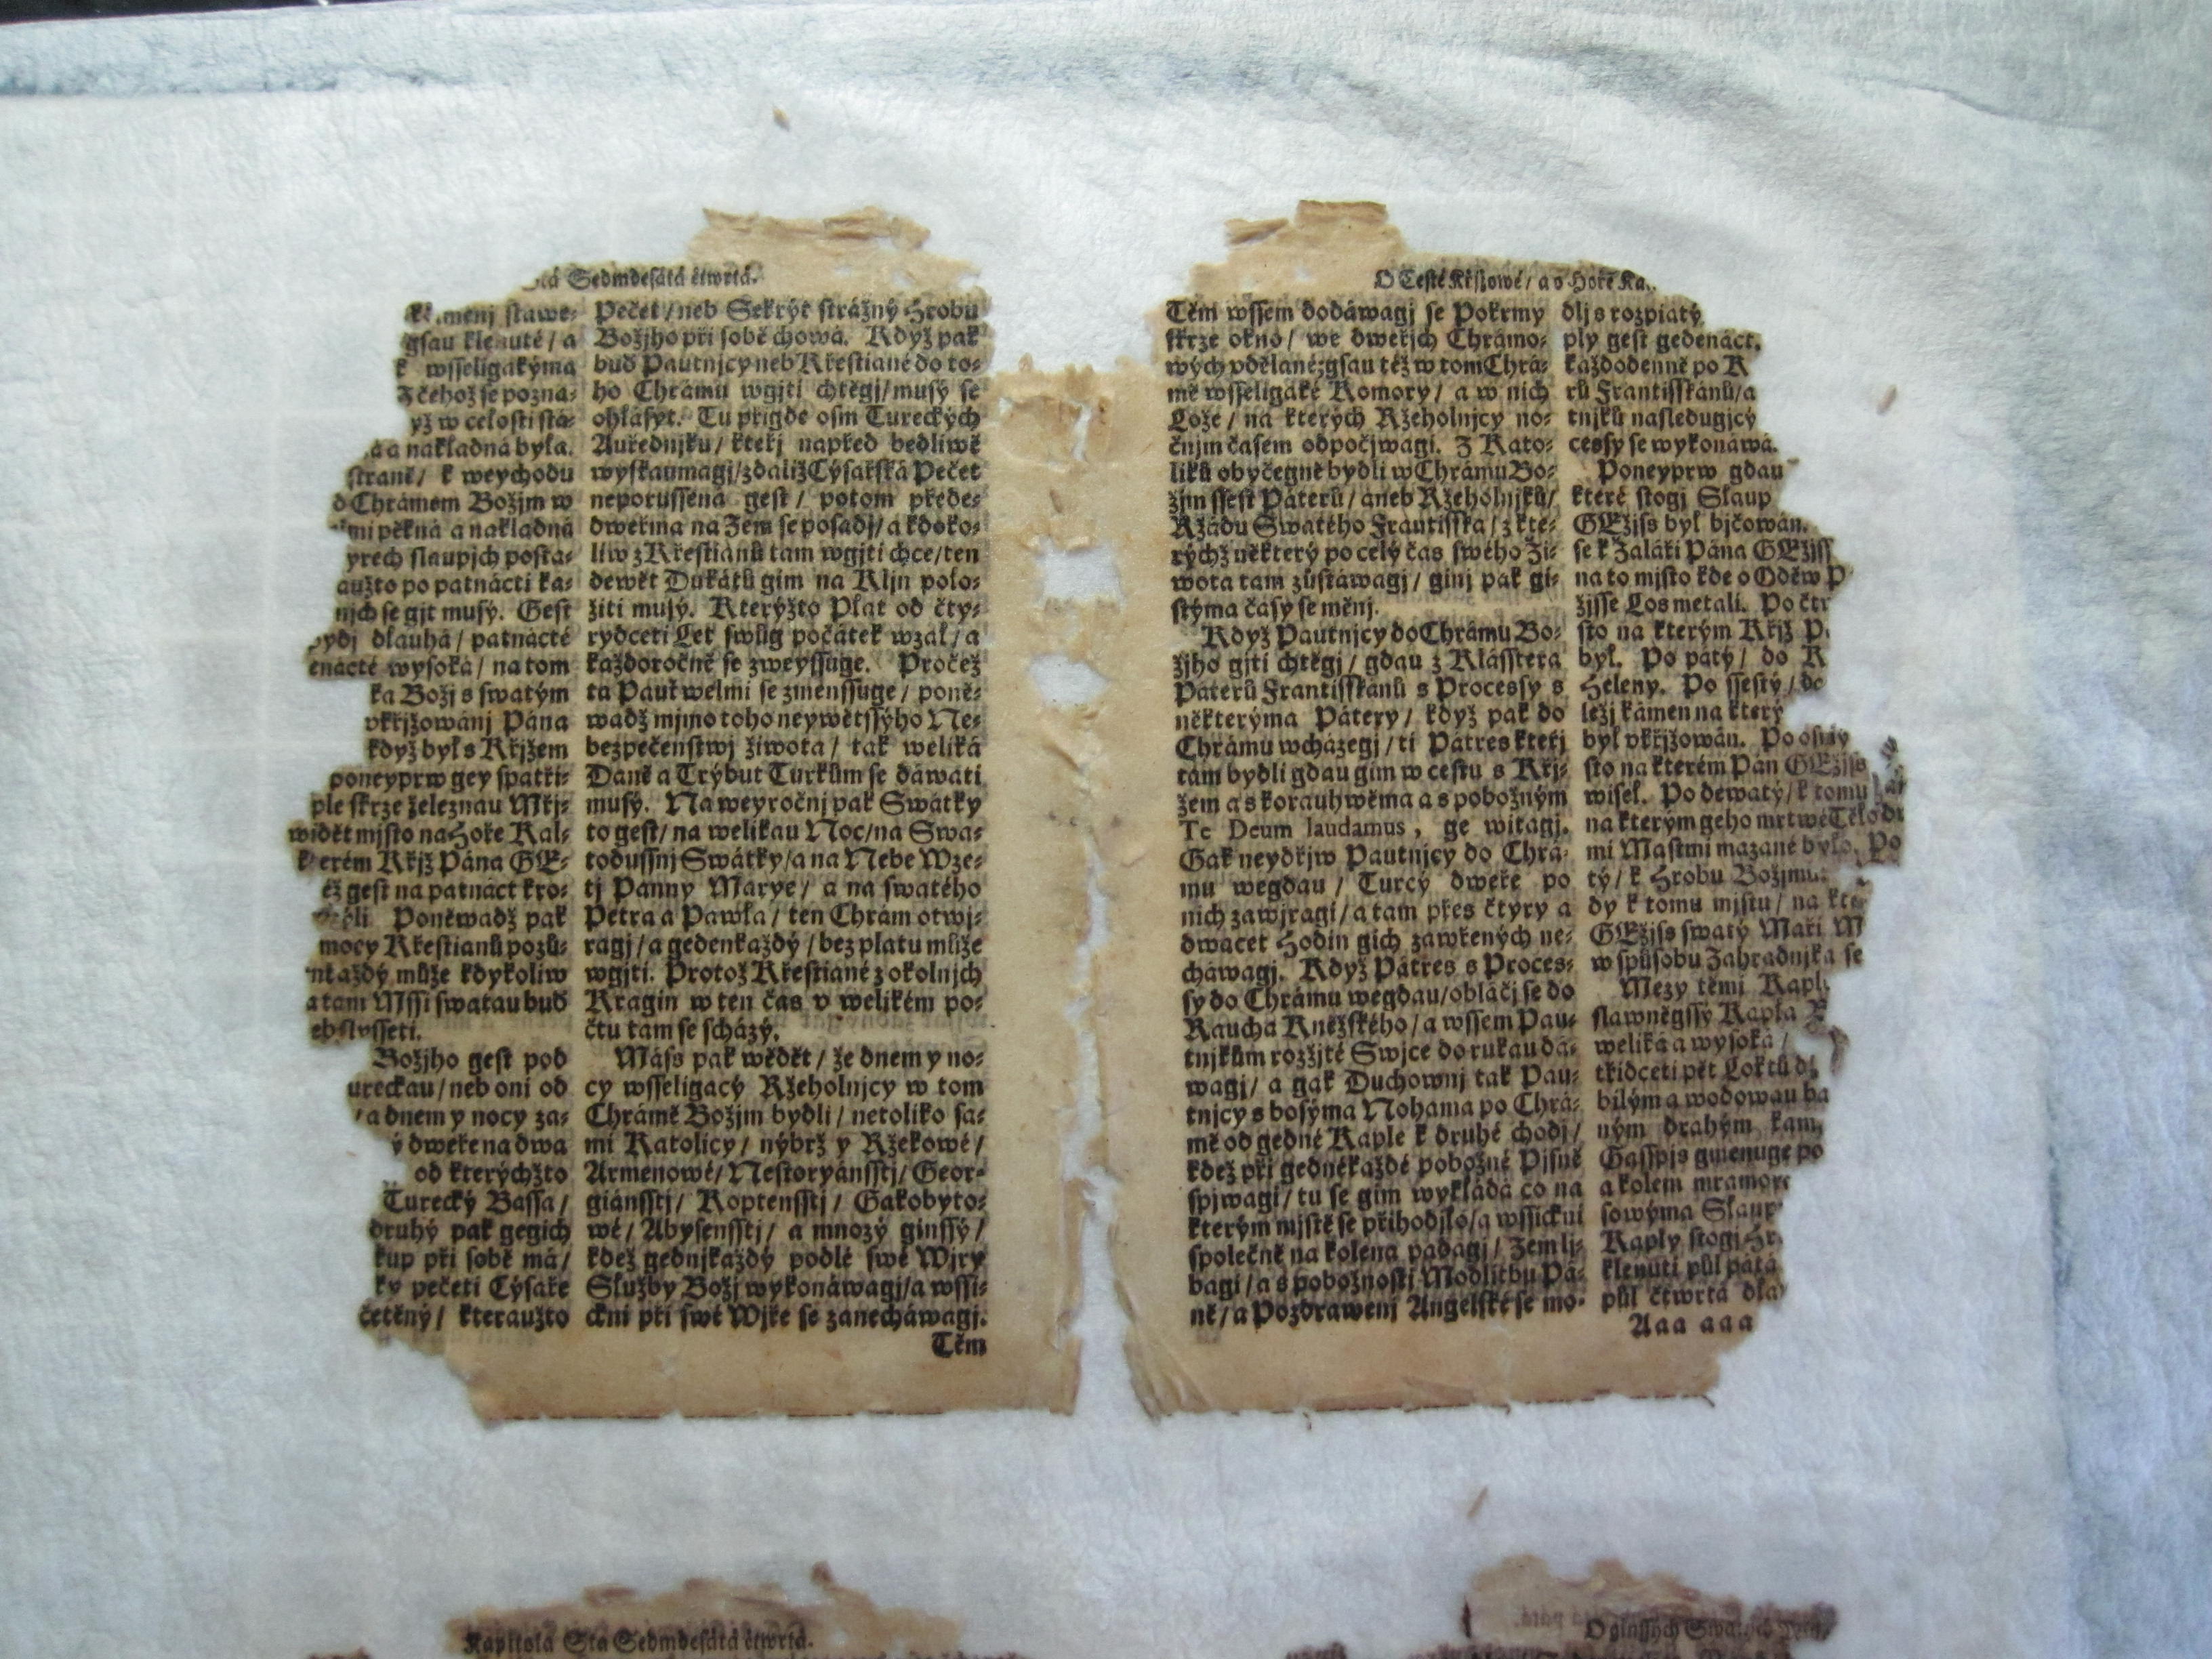 Stá Sedmdesátá čtwrtá.
menj stawe-
gsau klenuté / a
k wsseligakýma
Z čehož se pozna-
yž w celosti stá-
á a nákladná byla.
straně / k weychodu
Chrámem Božjm w
pěkná a nákladná
yrech slaupjch posta-
aužto po patnácti ka-
njch se gjt musý. Gest
dlauhá / patnácté
enácté wysoká / na tom
ka Božj s swatým
vkřižowánj Pána
když byl s Křjžem
poneyprw gey spatři-
ple skrze železnau Mřj-
widět mjsto na Hoře Kal-
kterém Křjž Pána GE-
éž gest na patnáct kro-
Poněwadž pak
mocy Křestianů pozů-
každý může kdykoliw
a tam Mssi swatau buď
slysseti.
Božjho gest pod
ureckau / neb oni od
/ a dnem y nocy za-
ý dweře na dwa
od kterýchžto
Turecký Bassa /
druhý pak gegich
kup při sobě má /
ky pečeti Cýsaře
četěný / kteraužto
Pečet / neb Sekrýt strážný Hrobu
Božjho při sobě chowá. Když pak
buď Pautnjcy neb Křestiané do to-
ho Chrámu wgjti chtěgj / musý se
ohlásyt. Tu přigde osm Tureckých
Auřednjků / kteřj napřed bedliwě
wyskaumagj / zdaliž Cýsařská Pečet
neporussená gest / potom přede-
dweřma na Zem se posadj / a kdoko-
liw z Křestianů tam wgjti chce / ten
dewět Dukátů gim na Kljn polo-
žiti musý. Kterýžto Plat od čty-
rydceti Let swůg počátek wzal / a
každoročně se zweyssuge. Pročež
ta Pauť welmi se zmenssuge / poně-
wadž mjmo toho neywětssýho Ne-
bezpečenstwj žiwota / tak weliká
Daně a Trýbut Turkům se dáwati
musý. Na weyročnj pak Swátky
to gest / na welikau Noc / na Swa-
todussnj Swátky / a na Nebe Wze-
tj Panny Marye / a na swatého
Petra a Pawla / ten Chrám otwj-
ragj / a gedenkaždý / bez platu může
wgjti. Protož Křestiané z okolnjch
Kragin w ten čas v welikém po-
čtu tam se scházý.
Máss pak wědět / že dnem y no-
cy wsseligacý Ržeholnjcy w tom
Chrámě Božjm bydlí / netoliko sa-
mi Katolicy / nýbrž y Ržekowé /
Armenowé / Nestoryánsstj / Geor-
giánsstj / Koptensstj / Gakobyto-
wé / Abysensstj / a mnozý ginssý /
kdež gednjkaždý podlé swé Wjry
Služby Božj wykonáwagj / a wssi-
ckni při swé Wjře se zanecháwagj.
Těm
O Cestě Křjžowé / a o Hoře Ka
Těm wssem dodáwagj se Pokrmy
skrze okno / we dweřjch Chrámo-
wých vdělané: gsau též w tom Chrá-
mě wsseligaké Komory / a w nich
Lože / na kterých Ržeholnjcy no-
čnjm časem odpočjwagi. Z Kato-
liků obyčegně bydlí w Chrámu Bo-
žjm ssest Páterů / aneb Ržeholnjků /
Ržádu Swatého Frantisska / z kte-
rýchž některý po celý čas swého Ži-
wota tam zůstáwagj / ginj pak gi-
stýma časy se měnj.
Když Pautnjcy do Chrámu Bo-
žjho gjti chtěgj / gdau z Klásstera
Páterů Frantisskánů s Processy s
některýma Pátery / když pak do
Chrámu wcházegj / ti Pátres kteřj
tam bydlí gdau gim w cestu s Křj-
žem a s korauhwěma a s pobožným
Te Deum laudamus, ge witagj.
Gak neydřjw Pautnjcy do Chrá-
mu wegdau / Turcý dweře po
nich zawjragj / a tam přes čtyry a
dwacet Hodin gich zawřených ne-
cháwagj. Když Pátres s Proces-
sy do Chrámu wegdau / obláčj se do
Raucha Kněžského / a wssem Pau-
tnjkům rozžjté Swjce do rukau dá-
wagj / a gak Duchownj tak Pau-
tnjcy s bosýma Nohama po Chrá-
mě od gedné Kaple k druhé chodj /
kdež při gednékaždé pobožné Pjsně
spjwagi / tu se gim wykládá co na
kterým mjstě se přihodjlo / a wssickni
společně na kolena padagj / Zem lj-
bagi / a s pobožnostj Modlitbu Pá-
ně / a Pozdrawenj Angelské se mo-
dlj s rozpiatý
ply gest gedenáct,
každodenně po K
rů Frantisskánů / a
tnjků následugjcý
cessy se wykonáwá.
Poneyprw gdau
které stogj Slaup
GEžjss byl bjčowán.
se k Žaláři Pána GEžjss
na to mjsto kde o Oděw P
žjsse Los metali. Po čtr
sto na kterým Křjž P
byl. Po pátý / do K
Heleny. Po ssestý / do
ležj kámen na který
byl vkřižowán. Po osmý
sto na kterém Pán GEžjss
wisel. Po dewátý / k tomu
na kterým geho mrtwé Tělo dr
mi Mastmi mazané bylo. Po
tý / k Hrobu Božjmu
dy k tomu mjstu / na kte
GEžjss swatý Maři M
w spůsobu Zahradnjka se
Mezy těmi Kapl
slawněgssý Kapla
weliká a wysoká /
třidceti pět Loktů dl
bilým a wodowau ba
ným drahým kam
Gasspis gmenuge po
a kolem mramor
sowýma Slaup
Kaply stogj Hr
klenutí půl pátá
půl čtwrtá dla
Aaa aaa
Kapitola Stá Sedmdesátá čtwrtá.
O ginssých Swatých